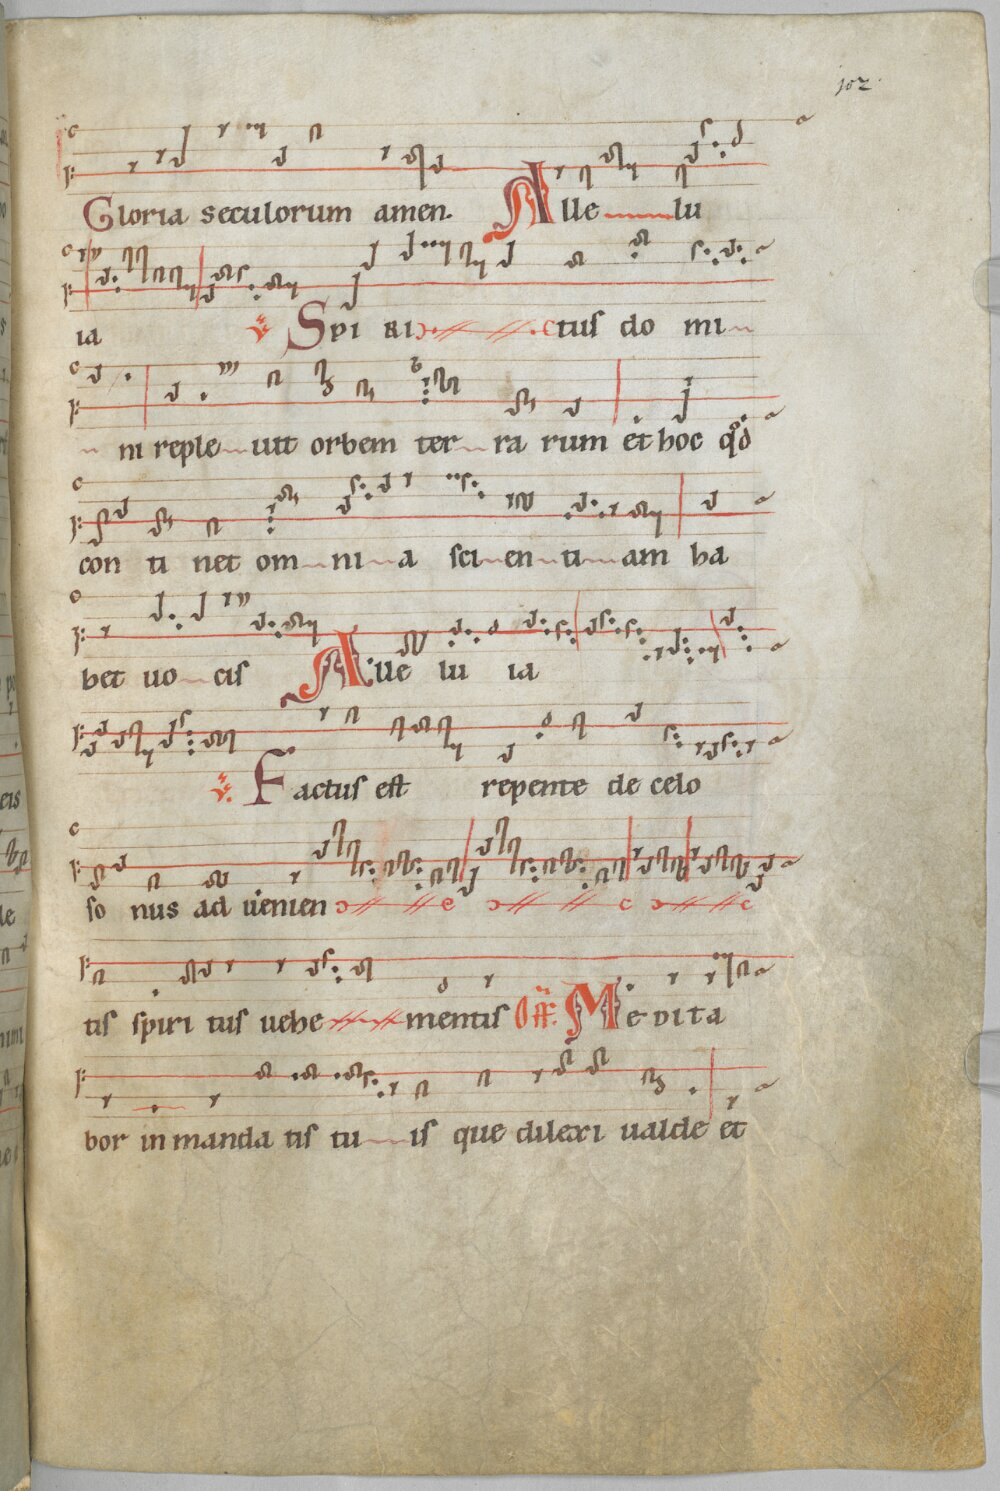 102
Gloria seculorum amen. Alle lu
ia ℣ Spi ri tus do mi
ni reple uit orbem ter ra rum et hoc qd
con ti net om ni a sci en ti am ha
bet uo cis Alle lu ia
℣ Factus est repente de celo
so nus ad uenien
tis spiri tus uehe mentis Off. Medita
bor in manda tis tu is que dilexi ualde et